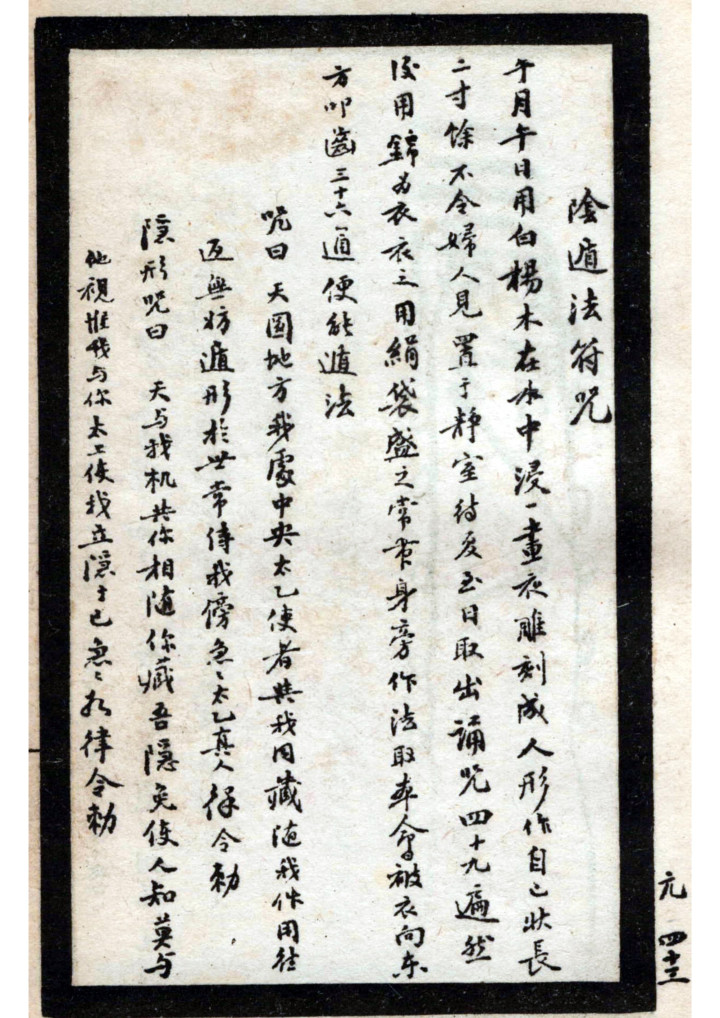 陰遁法符咒
午月午日用白楊木在水中浸一晝夜雕刻成人形作自己狀長
二寸餘不令婦人見置于静室待夏至日取出誦咒四十九遍然
後用錦为衣衣之用絹袋盛之常带身旁作法取本命被衣向东
方叩齒三十六通便能遁法
咒曰 天圆地方我處中央太乙使者與我同藏隨我作用往
返無妨遁形於世常侍我傍急々太乙真人律令勅
隱形咒曰 天与我机共你相隨你藏吾隱免使人知莫与
他視惟我与你太上使我立隱于已急々如律令勅
元 四十三